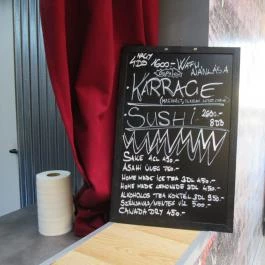 NAGY
4DB 1600.- WAFU
AJÁNLÁSA
KARRAGE
SUSHI 2600.-
8DB
SAKE 4CL 450.-
ASAHI ÜVEG 750.-
HOME MADE ICE TEA 3DL 450.-
HOME MADE LEMONADE 3DL 450.-
ALKOHOLOS TEA KOKTÉL 3DL 950.-
SZÉNSAVAS/MENTES VÍZ 300.-
CANADA DRY 450.-